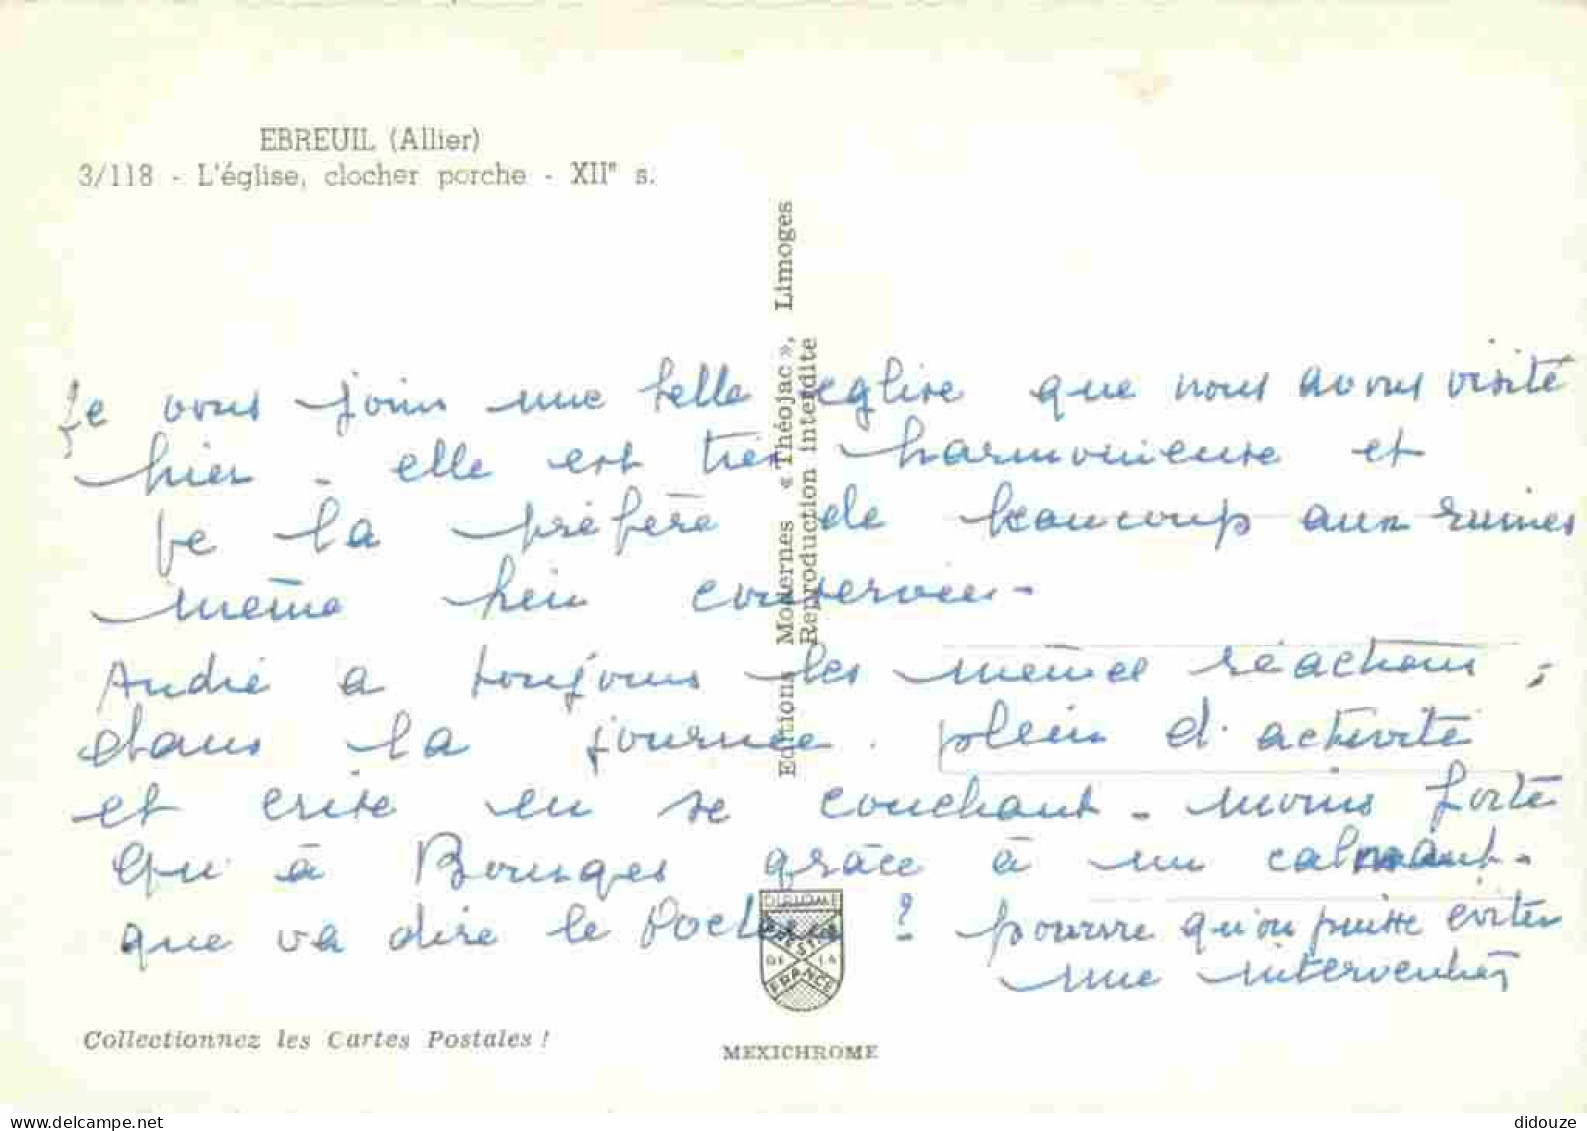 EBREUIL (Allier)
3/118 - L'église, clocher porche - XIIe s.
Editions Modernes « Théojac », Limoges
Reproduction interdite
Je vous joins une belle église que nous avons visité
hier - elle est très harmonieuse et
je la préfère de beaucoup aux ruines
même bien conservées -
André a toujours les mêmes réactions ;
dans la journée. plein d'activité
et crise en se couchant - moins forte
qu'à Bourges grâce à un calmant -
que va dire le Docteur ? pourvu qu'on puisse éviter
une intervention
DIPLOME
PRESTIGE
DE LA
FRANCE
Collectionnez les Cartes Postales !
MEXICHROME
didouze